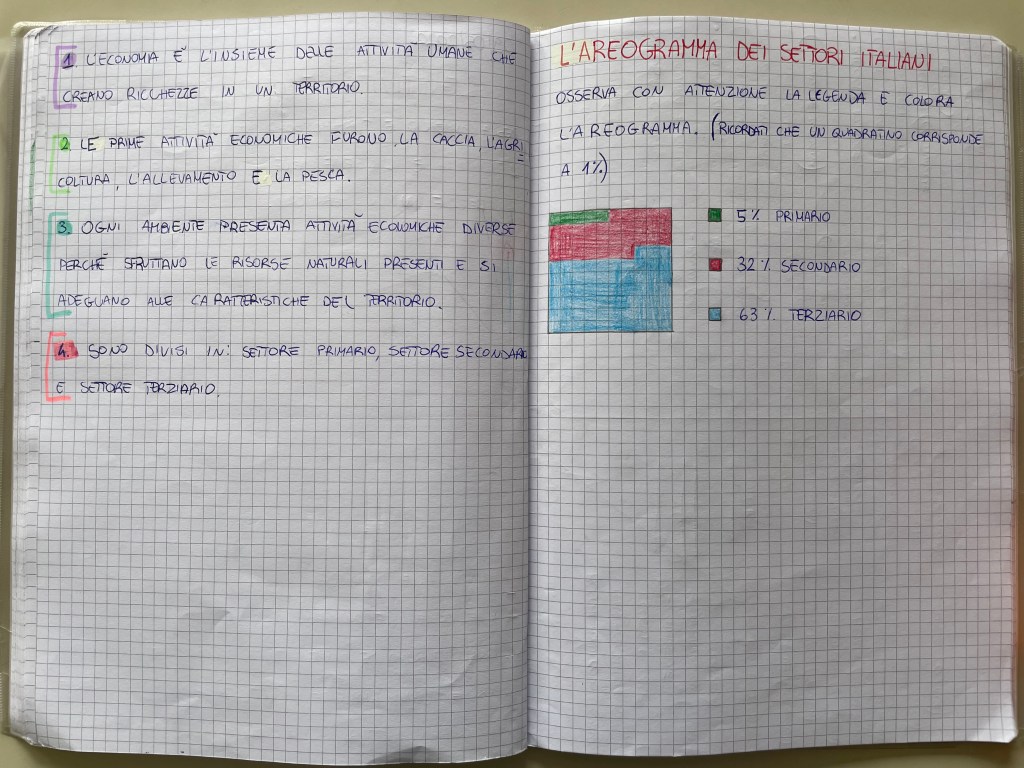 1. L'ECONOMIA È L'INSIEME DELLE ATTIVITÀ UMANE CHE
CREANO RICCHEZZE IN UN TERRITORIO.
2. LE PRIME ATTIVITÀ ECONOMICHE FURONO LA CACCIA, L'AGRI
COLTURA, L'ALLEVAMENTO E LA PESCA.
3. OGNI AMBIENTE PRESENTA ATTIVITÀ ECONOMICHE DIVERSE
PERCHÉ SFRUTTANO LE RISORSE NATURALI PRESENTI E SI
ADEGUANO ALLE CARATTERISTICHE DEL TERRITORIO.
4. SONO DIVISI IN: SETTORE PRIMARIO, SETTORE SECONDARIO
E SETTORE TERZIARIO.
L'AREOGRAMMA DEI SETTORI ITALIANI
OSSERVA CON ATTENZIONE LA LEGENDA E COLORA
L'AREOGRAMMA. (RICORDATI CHE UN QUADRATINO CORRISPONDE
A 1%)
5% PRIMARIO
32% SECONDARIO
63% TERZIARIO